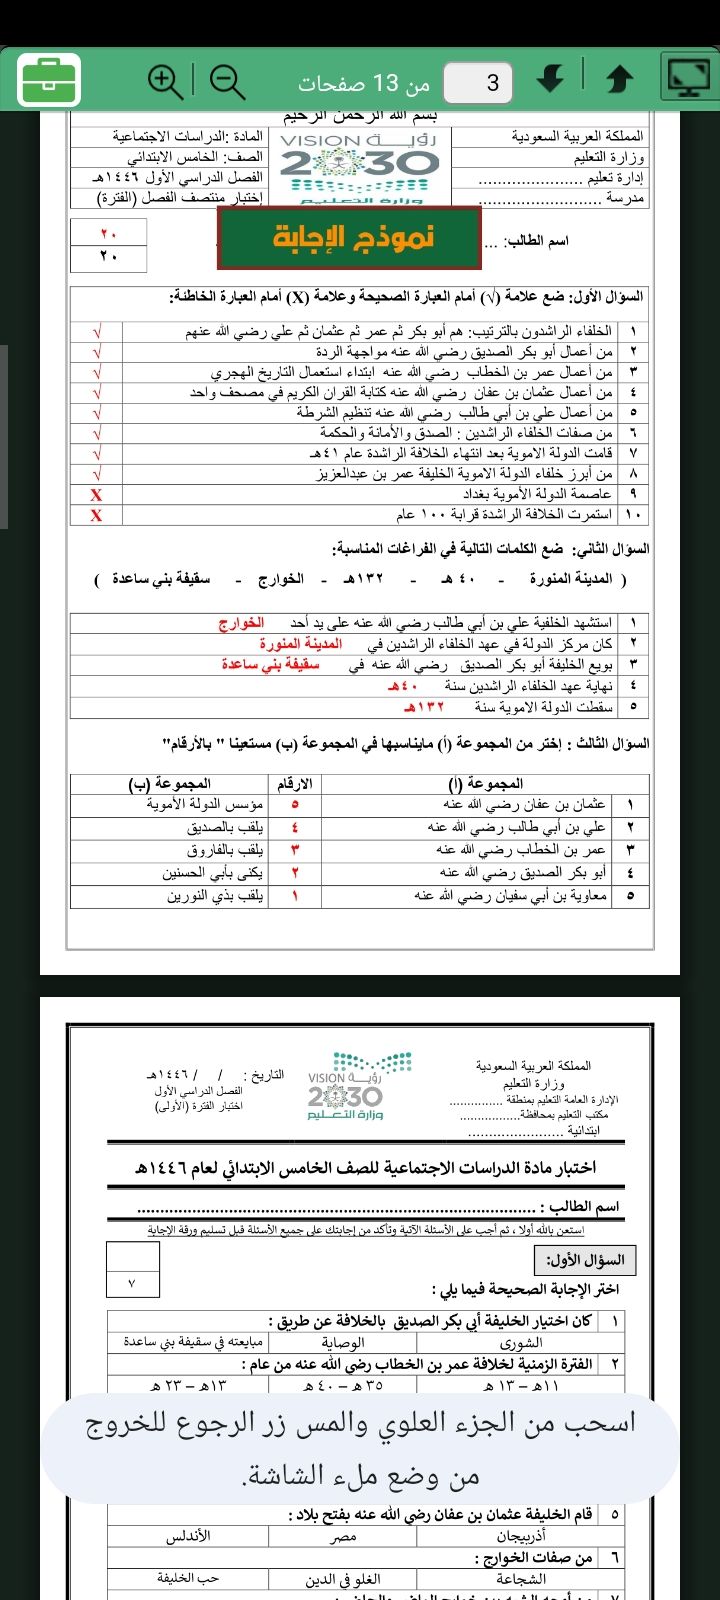 3 من 13 صفحات
بسم الله الرحمن الرحيم
المملكة العربية السعودية
وزارة التعليم
إدارة تعليم ......................
مدرسة ..........................
رؤيـــة VISION
2030
وزارة التعليم
المادة :الدراسات الاجتماعية
الصف: الخامس الابتدائي
الفصل الدراسي الأول ١٤٤٦هـ
إختبار منتصف الفصل (الفترة)
اسم الطالب: ...
نموذج الإجابة
٢٠
٢٠
السؤال الأول: ضع علامة (√) أمام العبارة الصحيحة وعلامة (X) أمام العبارة الخاطئة:
١ الخلفاء الراشدون بالترتيب: هم أبو بكر ثم عمر ثم عثمان ثم علي رضي الله عنهم √
٢ من أعمال أبو بكر الصديق رضي الله عنه مواجهة الردة √
٣ من أعمال عمر بن الخطاب رضي الله عنه ابتداء استعمال التاريخ الهجري √
٤ من أعمال عثمان بن عفان رضي الله عنه كتابة القران الكريم في مصحف واحد √
٥ من أعمال علي بن أبي طالب رضي الله عنه تنظيم الشرطة √
٦ من صفات الخلفاء الراشدين : الصدق والأمانة والحكمة √
٧ قامت الدولة الاموية بعد انتهاء الخلافة الراشدة عام ٤١هـ √
٨ من أبرز خلفاء الدولة الاموية الخليفة عمر بن عبدالعزيز √
٩ عاصمة الدولة الأموية بغداد X
١٠ استمرت الخلافة الراشدة قرابة ١٠٠ عام X
السؤال الثاني: ضع الكلمات التالية في الفراغات المناسبة:
( المدينة المنورة - ٤٠ هـ - ١٣٢هـ - الخوارج - سقيفة بني ساعدة )
١ استشهد الخلفية علي بن أبي طالب رضي الله عنه على يد أحد الخوارج
٢ كان مركز الدولة في عهد الخلفاء الراشدين في المدينة المنورة
٣ بويع الخليفة أبو بكر الصديق رضي الله عنه في سقيفة بني ساعدة
٤ نهاية عهد الخلفاء الراشدين سنة ٤٠هـ
٥ سقطت الدولة الاموية سنة ١٣٢هـ
السؤال الثالث : إختر من المجموعة (أ) مايناسبها في المجموعة (ب) مستعينا " بالأرقام"
المجموعة (أ) الارقام المجموعة (ب)
١ عثمان بن عفان رضي الله عنه ٥ مؤسس الدولة الأموية
٢ علي بن أبي طالب رضي الله عنه ٤ يلقب بالصديق
٣ عمر بن الخطاب رضي الله عنه ٣ يلقب بالفاروق
٤ أبو بكر الصديق رضي الله عنه ٢ يكنى بأبي الحسنين
٥ معاوية بن أبي سفيان رضي الله عنه ١ يلقب بذي النورين
المملكة العربية السعودية
وزارة التعليم
الإدارة العامة التعليم بمنطقة ...............
مكتب التعليم بمحافظة..................
ابتدائية .......................
رؤيـــة VISION
2030
وزارة التعـليم
التاريخ : / / ١٤٤٦هـ
الفصل الدراسي الأول
اختبار الفترة (الأولى)
اختبار مادة الدراسات الاجتماعية للصف الخامس الابتدائي لعام ١٤٤٦هـ
اسم الطالب : ................................................................................
استعن بالله أولا ، ثم أجب على الأسئلة الآتية وتأكد من إجابتك على جميع الأسئلة قبل تسليم ورقة الإجابة
السؤال الأول:
٧
اختر الإجابة الصحيحة فيما يلي :
١ كان اختيار الخليفة أبي بكر الصديق بالخلافة عن طريق :
الشورى الوصاية مبايعته في سقيفة بني ساعدة
٢ الفترة الزمنية لخلافة عمر بن الخطاب رضي الله عنه من عام :
١١هـ – ١٣ هـ ٣٥ هـ – ٤٠ هـ ١٣هـ – ٢٣ هـ
اسحب من الجزء العلوي والمس زر الرجوع للخروج
من وضع ملء الشاشة.
٥ قام الخليفة عثمان بن عفان رضي الله عنه بفتح بلاد :
أذربيجان مصر الأندلس
٦ من صفات الخوارج :
الشجاعة الغلو في الدين حب الخليفة